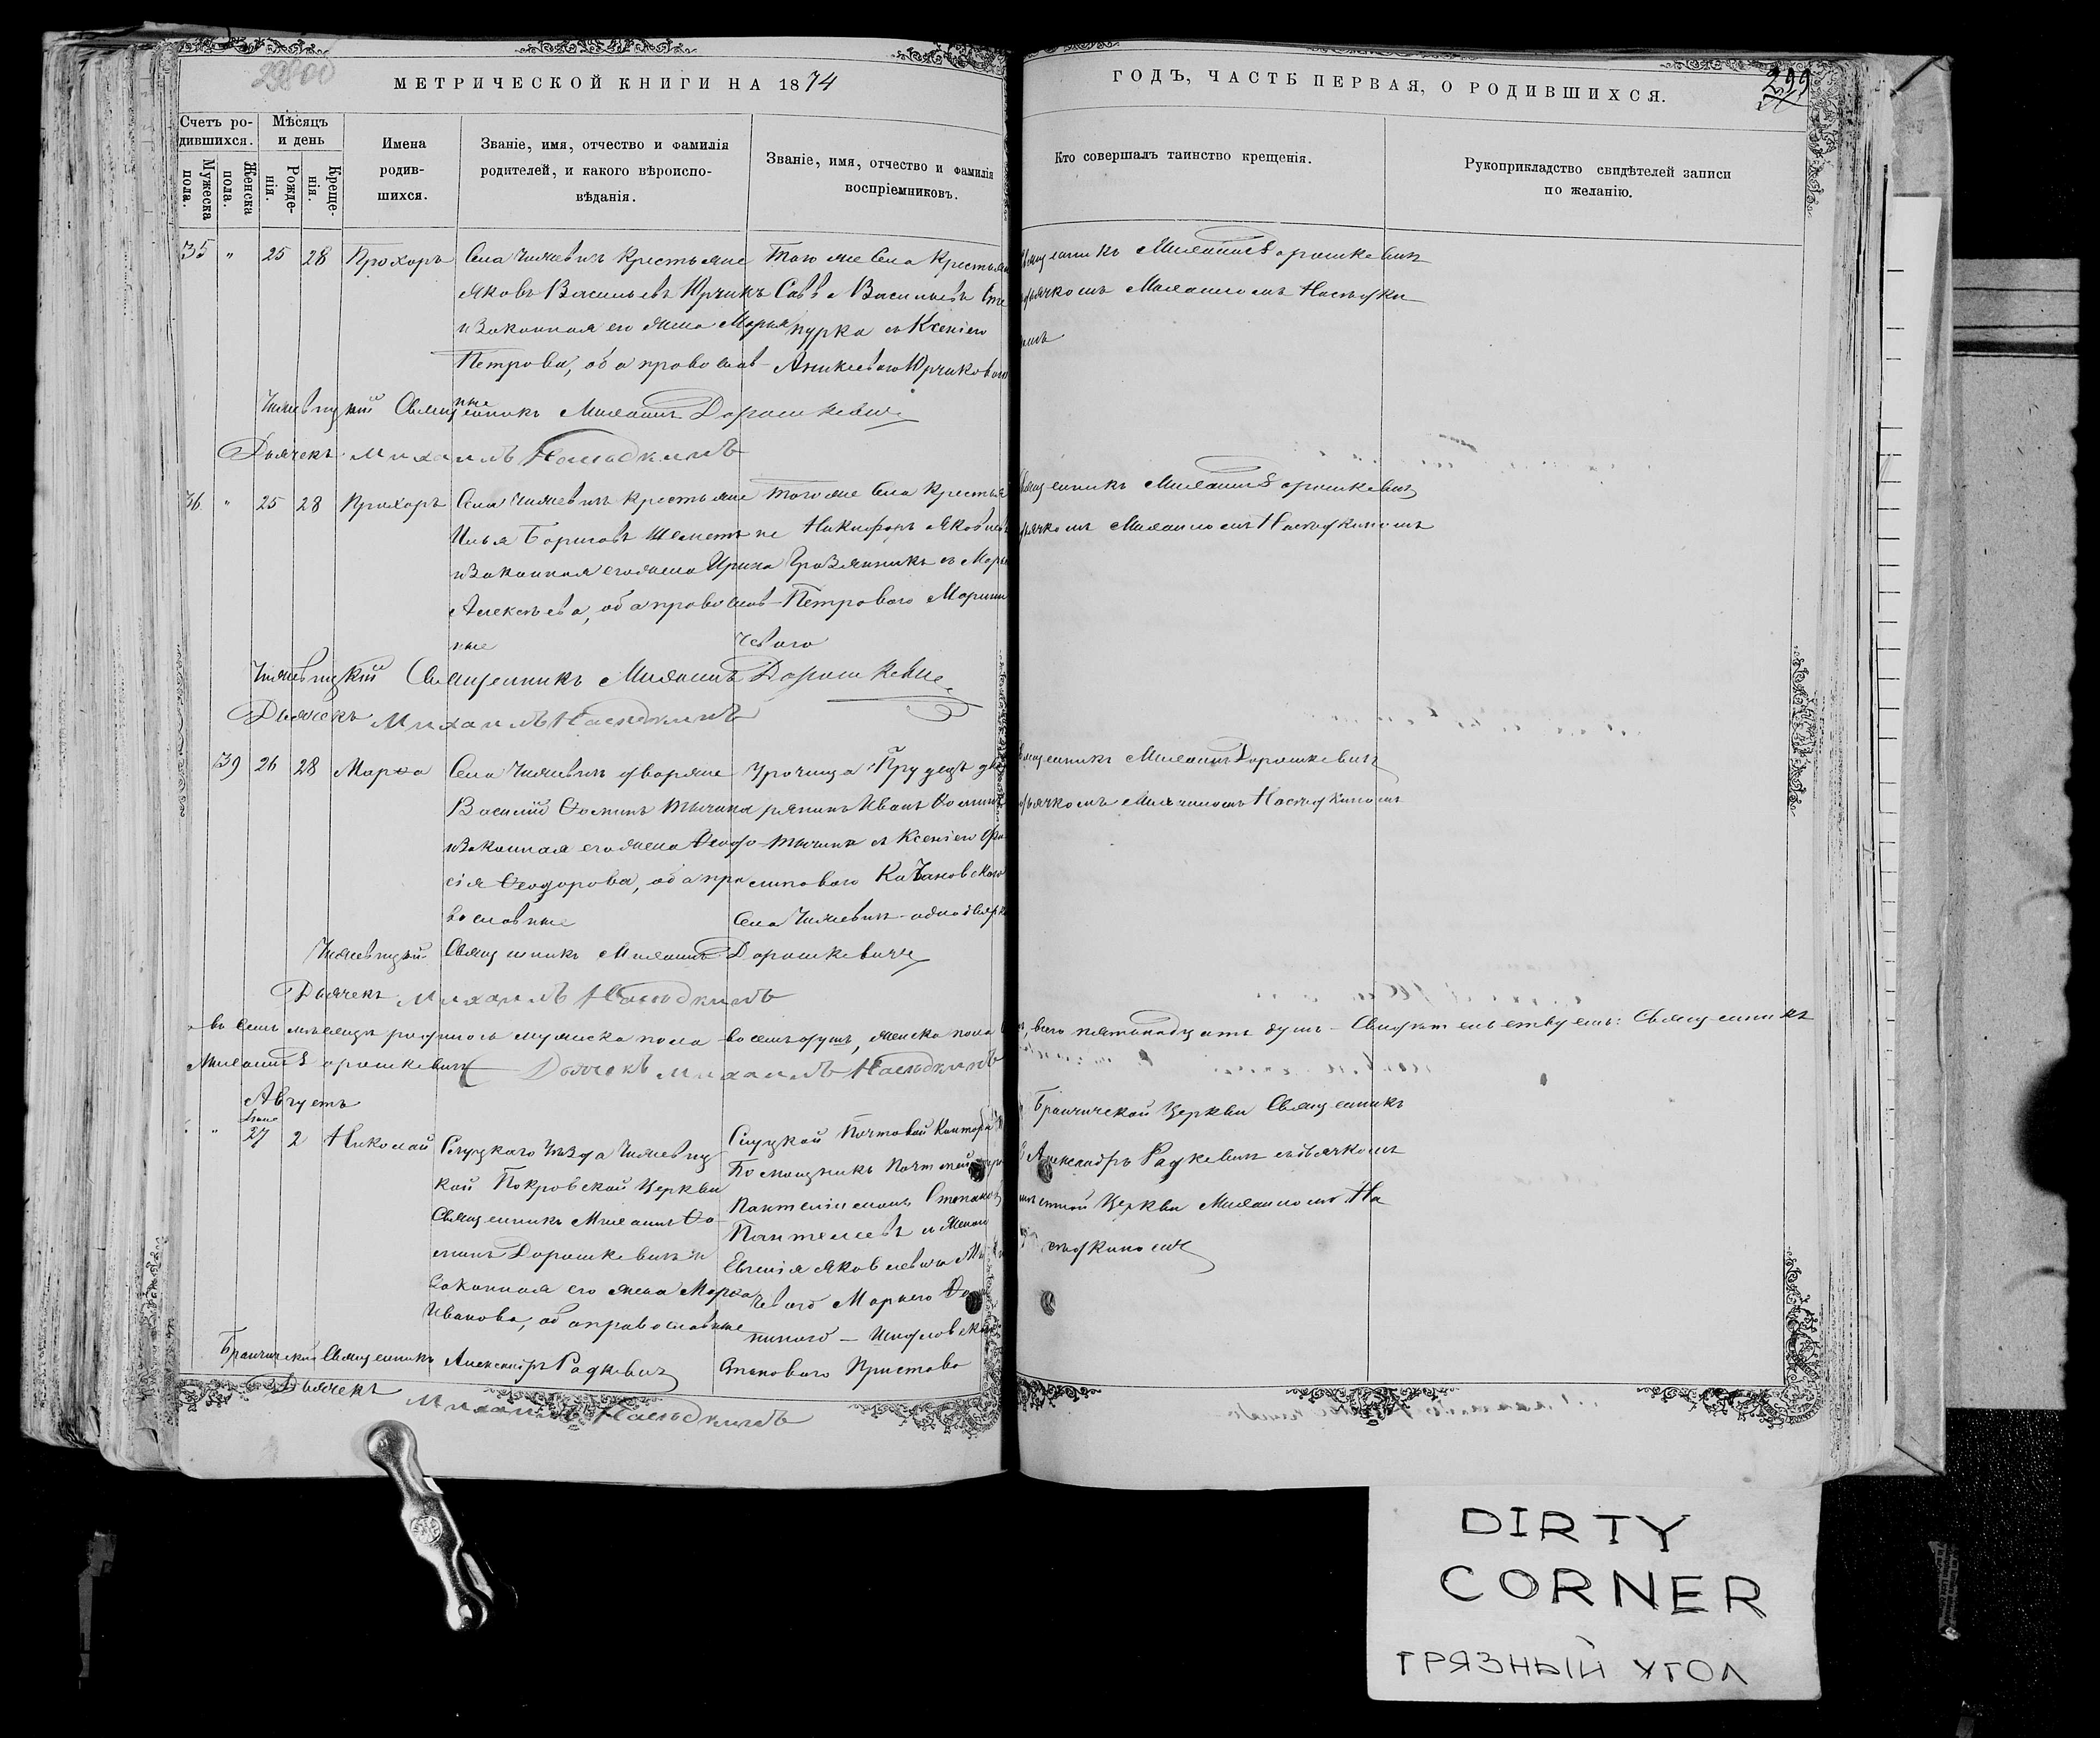 29800
МЕТРИЧЕСКОЙ КНИГИ НА 1874
ГОДЪ, ЧАСТЬ ПЕРВАЯ, О РОДИВШИХСЯ.
299
Счетъ ро-
дившихся.
Мужеска пола.
Женска пола.
Мѣсяцъ
и день
Рожде-
нія.
Креще-
нія.
Имена
родив-
шихся.
Званіе, имя, отчество и фамилія
родителей, и какого вѣроиспо-
вѣданія.
Званіе, имя, отчество и фамилія
воспріемниковъ.
Кто совершалъ таинство крещенія.
Рукоприкладство свидѣтелей записи
по желанію.
35 " 25 28 Прохоръ
Села Чижевичъ крестьяне
Яковъ Васильевъ Юрчикъ
и законная его жена Марья
Петрова, оба православ-
ные
Того же Села Крестьян
Савва Васильевъ
пурка и Ксенія
Аникіева Юрчикова
Священникъ Михаилъ Дорошкевичъ
дьячкомъ Михаиломъ Наслѣдки
номъ
Чижевицкій Священникъ Михаилъ Дорошкевичъ
Дьячекъ Михаилъ Наслѣдкинъ
36 " 25 28 Прохоръ
Села Чижевичъ крестьяне
Илья Борисовъ Шеметъ
и законная его жена Ирина
Алексѣева, оба православ-
ные
Того же Села Крестья
не Никифоръ Яковлевъ
Грозянникъ и Марья
Петрового Марини
чевого
Священникъ Михаилъ Дорошкевичъ
дьячкомъ Михаиломъ Наслѣдкиномъ
Чижевицкій Священникъ Михаилъ Дорошкевичъ
Дьячекъ Михаилъ Наслѣдкинъ
39 26 28 Марѳа
Села Чижевичъ дворяне
Василій Ѳоминъ Тычина
и законная его жена Ѳеодо
сія Ѳеодорова, оба пра
вославные
Урочища Прудецъ дво
рянинъ Иванъ Ѳоминъ
Тычина и Ксенія
Села Чижевичъ - однодворка
Священникъ Михаилъ Дорошкевичъ
дьячкомъ Михаиломъ Наслѣдкиномъ
Чижевицкій Священникъ Михаилъ Дорошкевичъ
Дьячекъ Михаилъ Наслѣдкинъ
въ семъ мѣсяцѣ родилось мужеска пола восемь душъ, женска пола
всего пятьнадцать душъ - Свидѣтельствуемъ: Священникъ
Михаилъ Дорошкевичъ Дьячекъ Михаилъ Наслѣдкинъ
Августъ
Іюля
" " 27 2 Николай
Слуцкаго Уѣзда Чижевиц
кой Покровской Церкви
Священникъ Михаилъ Ѳо-
минъ Дорошкевичъ и
законная его жена Марѳа
Иванова, оба православные
Слуцкой Почтовой Конторы
Помощникъ Почтмейстера
Пантелеймонъ Степановъ
Пантелеевъ и жена
Евгенія Яковлевна
Станового Пристава
Бранчицкой Церкви Священникъ
Александръ Радкевичъ съ дьячкомъ
мѣстной Церкви Михаиломъ На
слѣдкиномъ
Бранчицкій Священникъ Александръ Радкевичъ
Дьячекъ Михаилъ Наслѣдкинъ
DIRTY
CORNER
ГРЯЗНЫЙ УГОЛ